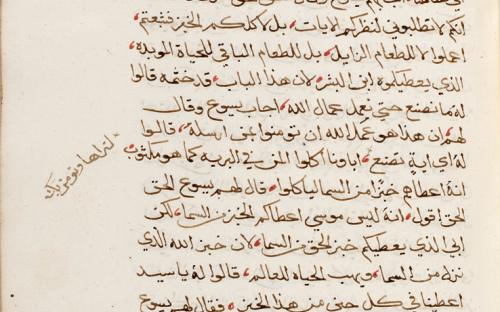 انكم لا تطلبونى لنظركم الايات، بل لاكلكم الخبز فشبعتم،
اعملوا لا للطعام الزايل، بل للطعام الباقى للحياة الموبده،
الذي يعطيكموه ابن البشر، لان هذا الباب قد ختمه قالوا
له ما نصنع حتى نعمل عمال الله، اجاب يسوع وقال
لهم، ان هذا هو عمل الله ان تومنوا بمن ارسله، قالوا
له اي اية تصنع، اباونا اكلوا المن في البريه كما هو مكتوب
انه اعطاهم خبزا من السما لياكلوا، قال لهم يسوع الحق
الحق اقول، انه ليس موسى اعطاكم الخبز من السما، لكن
ابي الذي يعطيكم خبز الحق من السما، لان خبز الله الذي
نزل من السما، ويهب الحياة للعالم، قالوا له يا سيد
اعطينا في كل حين من هذا الخبز، فقال لهم يسوع
لنراها ونومن بك